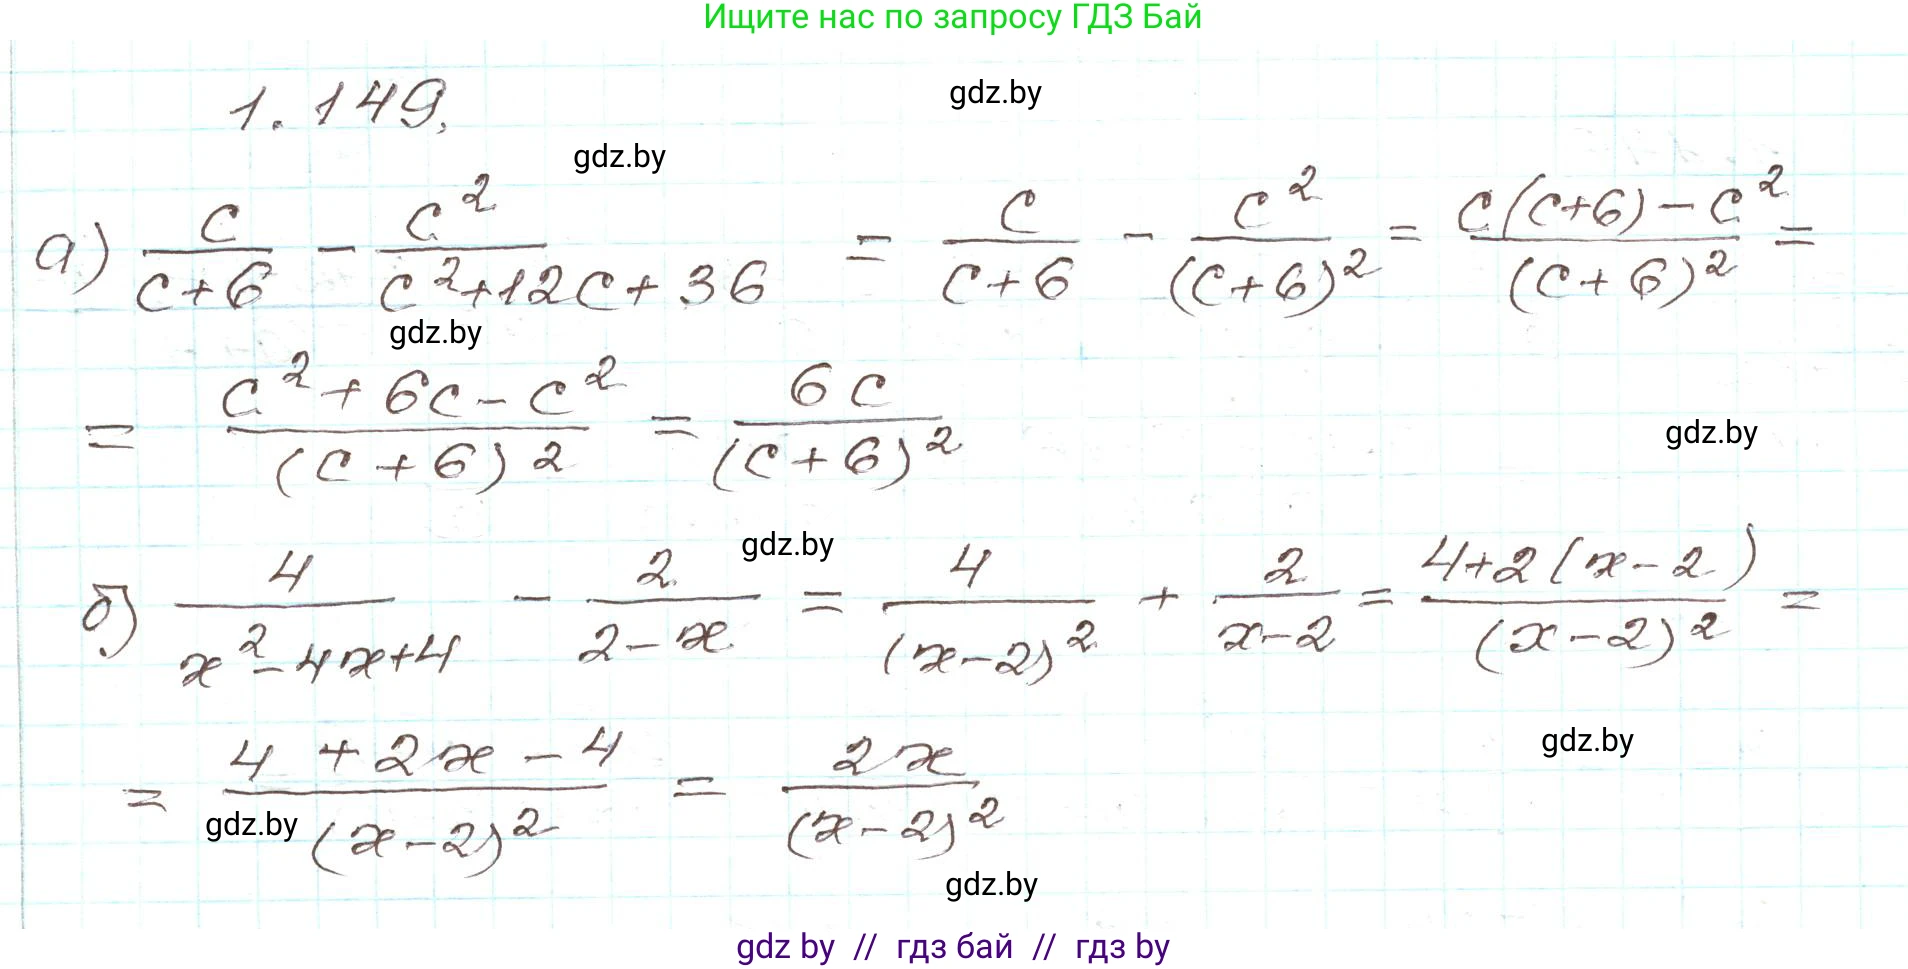 Ищите нас по запросу ГДЗ Бай
1.149.
gdz.by
gdz.by
а) c/(c+6) - c²/(c²+12c+36) = c/(c+6) - c²/(c+6)² = (c(c+6)-c²)/(c+6)² =
gdz.by
= (c²+6c-c²)/(c+6)² = 6c/(c+6)²
gdz.by
gdz.by
б) 4/(x²-4x+4) - 2/(2-x) = 4/(x-2)² + 2/(x-2) = (4+2(x-2))/(x-2)² =
gdz.by
= (4+2x-4)/(x-2)² = 2x/(x-2)²
gdz.by
gdz.by
gdz by // гдз бай // гдз by